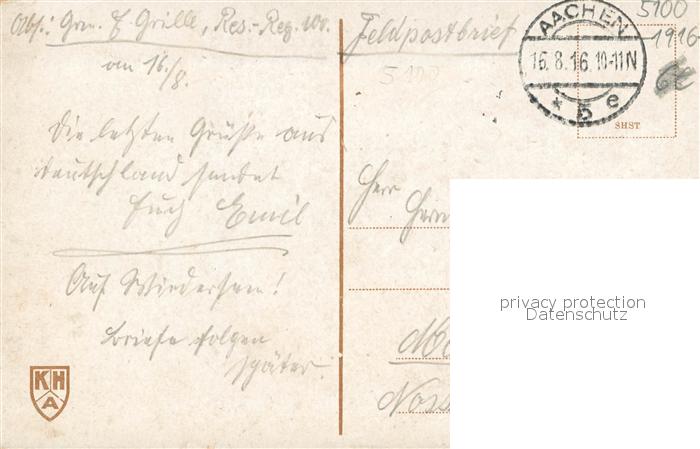 Abs.: Gren. E. Grille, Res.-Reg.
am 16./8.
Die letzten Grüße aus
Deutschland sendet
Euch Emil
Auf Wiedersehen!
Briefe folgen
später.
KHA
Feldpostbrief
5100
1916
6€
5100
AACHEN
16.8.16.10-11N
* 5 e
SHST
Herr
privacy protection
Datenschutz